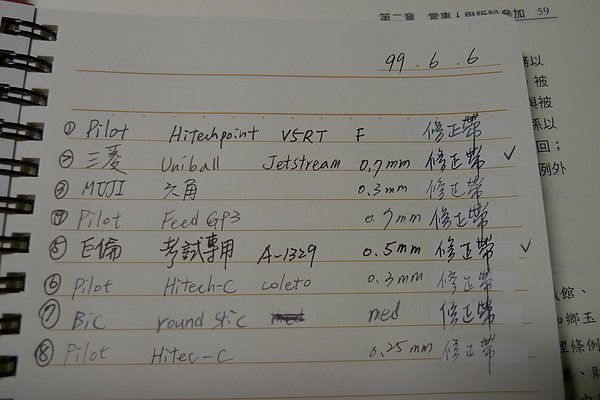 第二章 當事人與訴訟參加 59
99.6.6
① Pilot Hitechpoint V5RT F 修正帶
② 三菱 Uniball Jetstream 0.7mm 修正帶 ✓
③ MUJI 六角 0.3mm 修正帶
④ Pilot Feed GP3 0.7mm 修正帶
⑤ 巨倫 考試專用 A-1329 0.5mm 修正帶 ✓
⑥ Pilot Hitech-C coleto 0.3mm 修正帶
⑦ Bic round stic med 修正帶
⑧ Pilot Hitec-C 0.25mm 修正帶
以
被
與被
係以
回；
例外
館、
鄉玉
條例